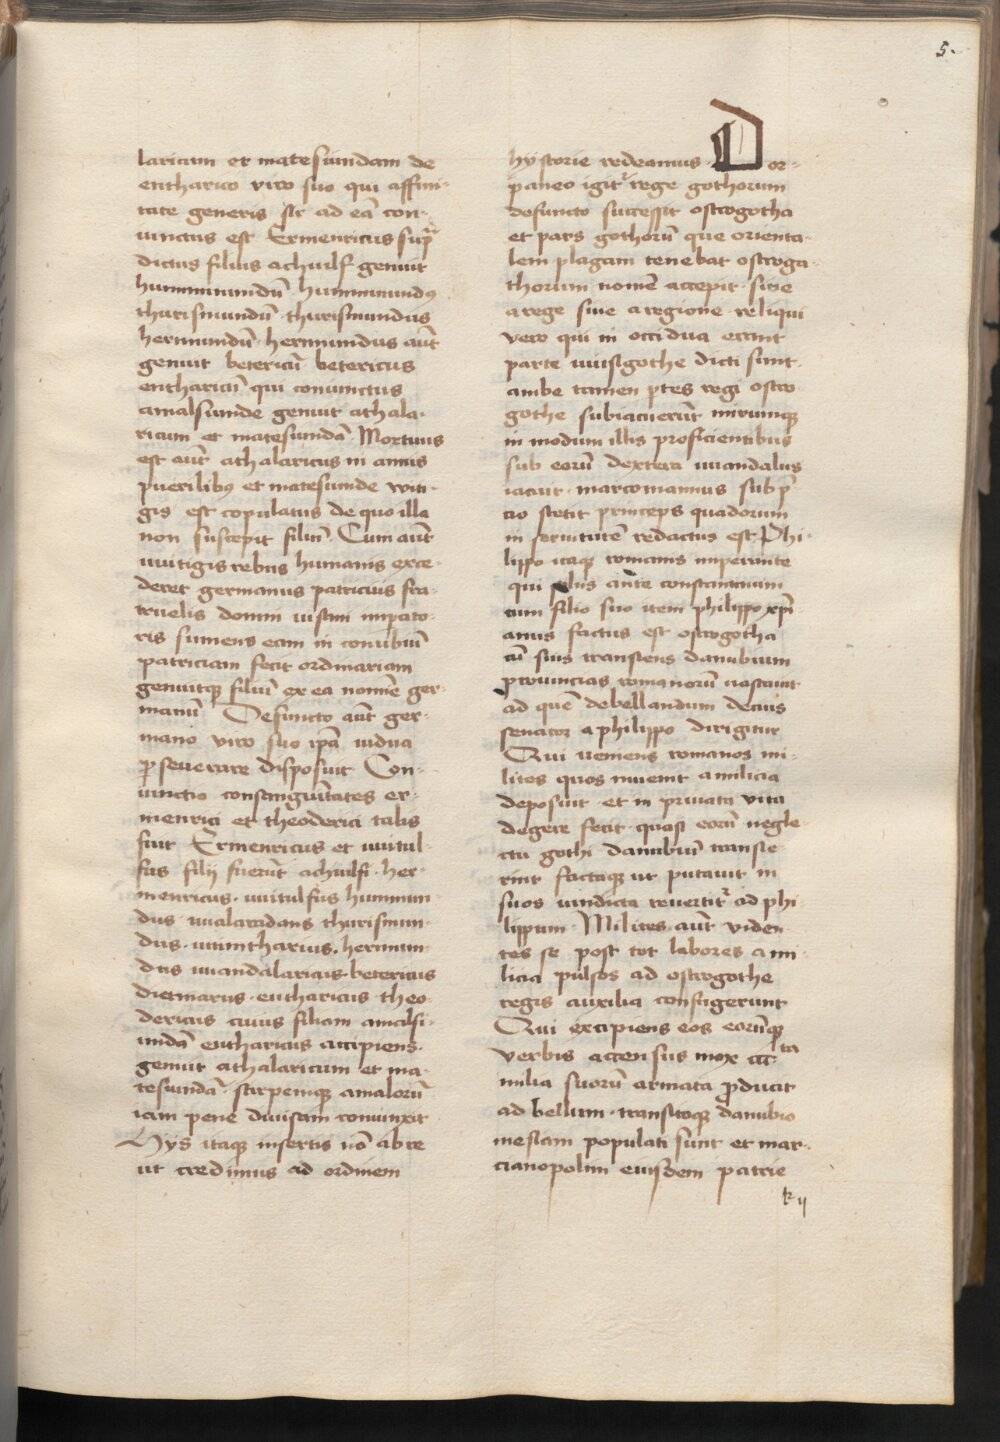 5.
laricum et matesuindam de
eutharico viro suo qui affini-
tate generis sic ad eā con-
iunctus est Ermenricus sup̄
dictus filius achiulf genuit
hunnimundū · hunnimundꝰ
thurismundū · thurismundus
hermundū · hermundus aūt
genuit betericū betericus
eutharicū qui coniunctus
amalsuinde genuit athala-
ricum et matesuindā Mortuus
est aūt athalaricus in annis
puerilibꝰ et matesuinde viti-
gis est copulatus de quo illa
non suscepit filiū Cum aūt
uuitigis rebus humanis exce-
deret germanus patricius fra-
truelis domini iustini imꝑato-
ris sumens eam in conubiū
patriciam fecit ordinariam
genuitqꝫ filiū ex ea nomīe ger-
manū Defuncto aūt ger-
mano viro suo ip̄a uidua
ꝑseverare disposuit Con-
iunctio consanguītates er-
menrici et theoderici talis
fuit Ermenricus et uuitul-
fus filij fuerūt achiulfi · her-
menricus · uuitulfus hunnim-
dus ualarādans thurismun-
dus · uuintharius · hermun-
dus uuandalaricus betericus
dietmarus · eutharicus theo-
dericus cuius filiam amalsi-
undā eutharicus accipiens ·
genuit athalaricum et ma-
tesuindā · stirpemqꝫ amalorū
iam pene diuisam coniunxit
Hys itaqꝫ insertis nō ab re
ut credimus ad ordinem
hystorie redeamus · Dor-
paneo igit̄ rege gothorum
defuncto successit ostrogotha
et pars gothorū que orienta-
lem plagam tenebat ostroga-
thorum nomē accepit · sive
a rege sive a regione · reliqui
vero qui in occidua erant
parte uuisigothe dicti sunt ·
ambe tamen ꝑtes regi ostro-
gothe subiacuerūt mirumqꝫ
in modum illis proficientibus
sub eorū dextera uuandalus
iacuit · marcomannus sub p̄-
cio stetit princeps quadorum
in seruitutē redactus est Phi-
lippo itaqꝫ romanis imperante
qui solus ante constantinum
cum filio suo item philippo xp̄i-
anus factus est ostrogotha
cū suis transiens danubium
prouincias romanorū uastauit
ad quē debellandum decius
senator a philippo dirigitur
Qui ueniens romanos mi-
lites quos inuenit a milicia
deposuit · et in priuata vita
degere fecit · quasi eorū negle-
ctu gothi danubiū transie-
rint factaqꝫ ut putauit in
suos uindicta reuertit̄ ad phi-
lippum · Milites aūt viden-
tes se post tot labores a mi-
licia pulsos ad ostrogothe
regis auxilia confugerunt
Qui excipiens eos eorūqꝫ
verbis accensus mox ccctа
milia suorū armata ꝓducit
ad bellum · transitoqꝫ danubio
mesiam populati sunt et mar-
cianopolim eiusdem patrie
k ij